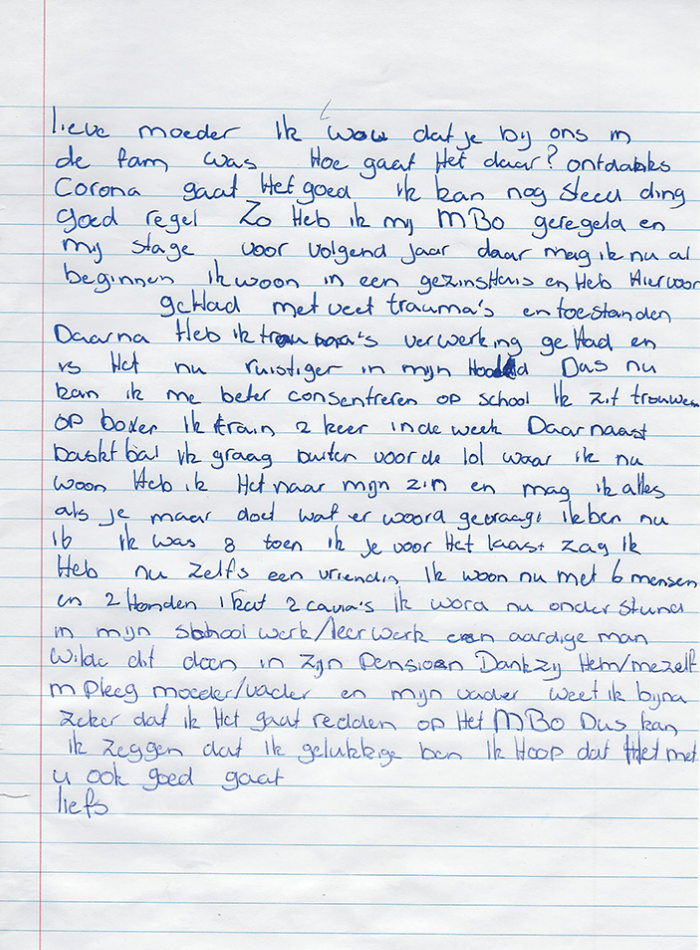 lieve moeder ik wou dat je bij ons in
de fam was Hoe gaat Het daar? ontdanks
Corona gaat Het goed ik kan nog steed ding
goed regel Zo Heb ik mij MBO geregeld en
mij stage voor volgend jaar daar mag ik nu al
beginnen ik woon in een gezinsHuis en Heb Hiervoor
gcHad met veel trauma's en toestanden
Daarna Heb ik trauma's verwerking geHad en
is Het nu ruistiger in mijn Hoofd Dus nu
kan ik me beter consentreren op school Ik zit trouwen
op boxen ik train 2 keer in de week Daarnaast
basktbal ik graag buiten voor de lol waar ik nu
woon Heb ik Het naar mijn zin en mag ik alles
als je maar doet wat er woord gevraagt ik ben nu
16 ik was 8 toen ik je voor Het laast zag ik
Heb nu zelfs een vriendin Ik woon nu met 6 mensen
en 2 Honden 1 kat 2 cavia's ik word nu onder stund
in mijn school werk/leerwerk een aardige man
wilde dit doen in zijn pensioen Dankzij Hem/mezelf
m pleeg moeder/vader en mijn vader weet ik bijna
zeker dat ik Het gaat redden op Het MBO Dus kan
ik zeggen dat ik gelukkige ben Ik Hoop dat Het met
u ook goed gaat
liefs